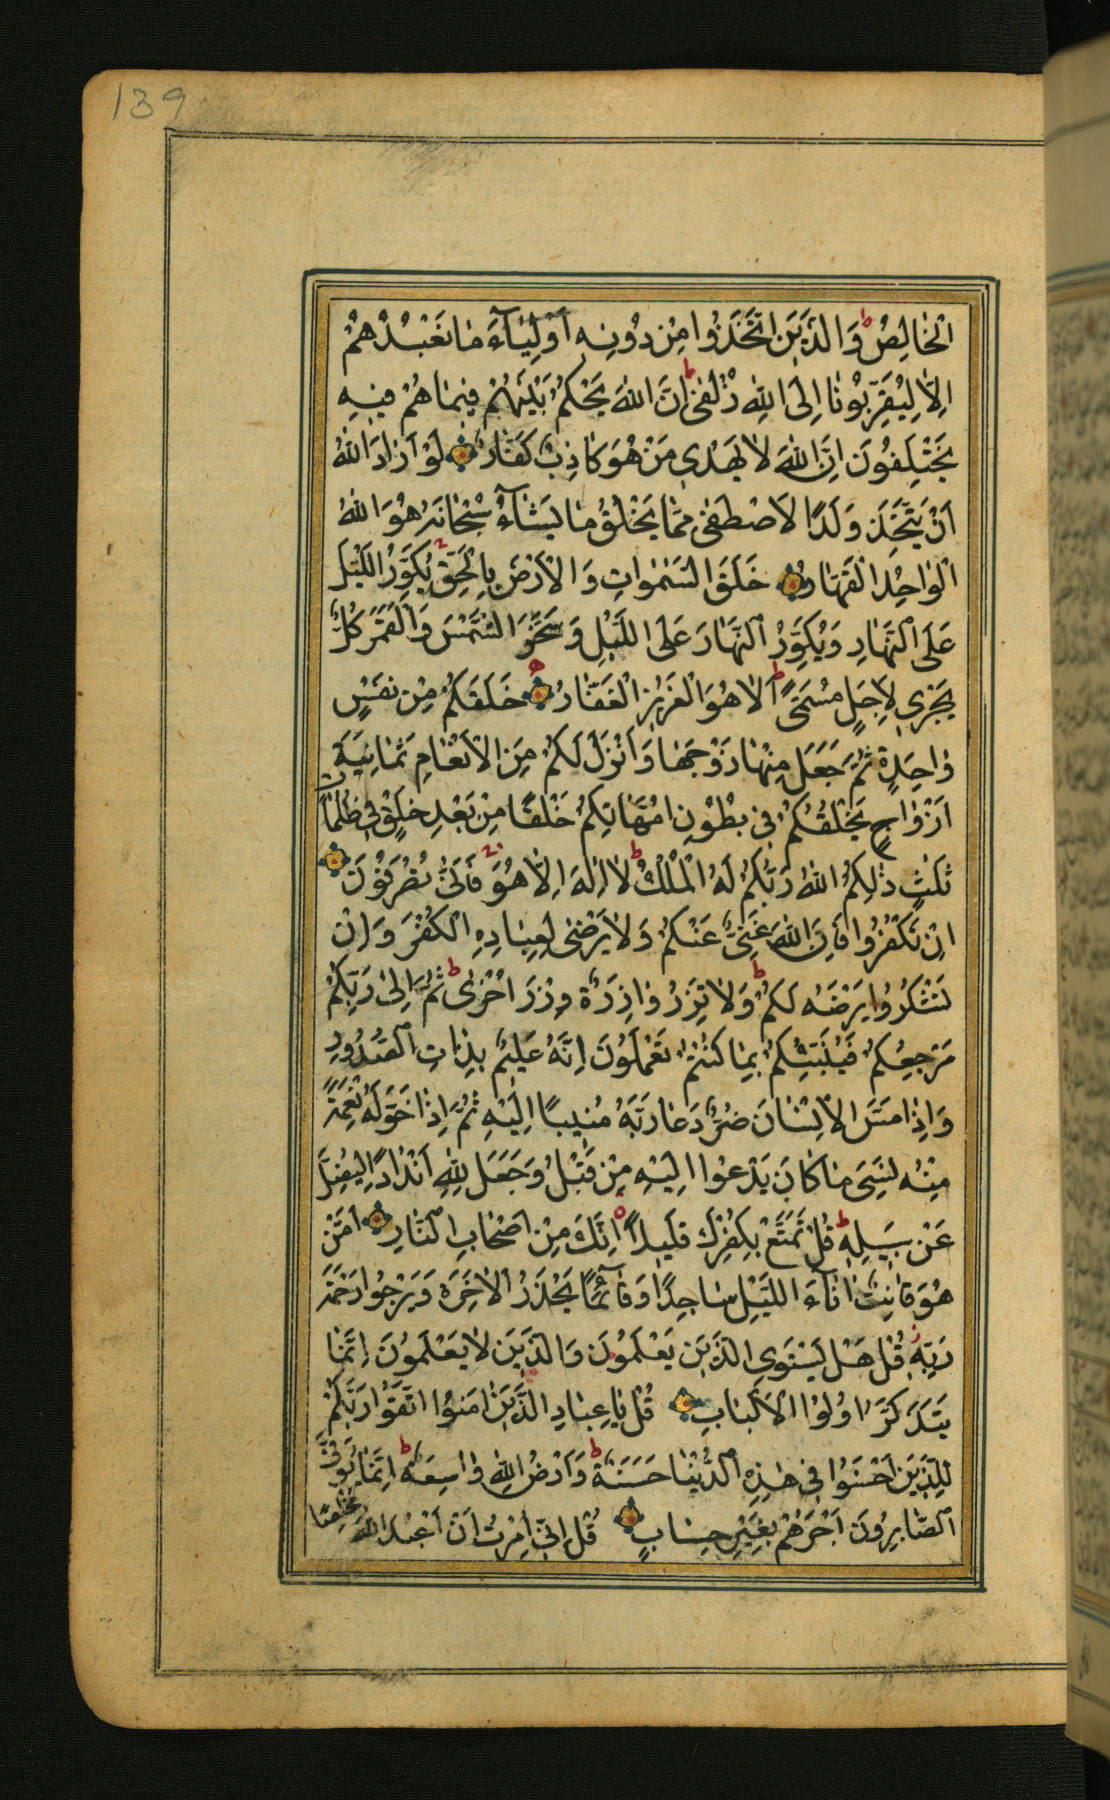 139
الْخَالِصُ ط وَالَّذِينَ اتَّخَذُوا مِنْ دُونِهِ أَوْلِيَاءَ مَا نَعْبُدُهُمْ
اِلَّا لِيُقَرِّبُونَا اِلَى اللّٰهِ زُلْفٰى ط اِنَّ اللّٰهَ يَحْكُمُ بَيْنَهُمْ فِيمَا هُمْ فِيهِ
يَخْتَلِفُونَ اِنَّ اللّٰهَ لَا يَهْدِي مَنْ هُوَ كَاذِبٌ كَفَّارٌ لَوْ اَرَادَ اللّٰهُ
اَنْ يَتَّخِذَ وَلَدًا لَاصْطَفٰى مِمَّا يَخْلُقُ مَا يَشَآءُ سُبْحَانَهُ هُوَ اللّٰهُ
الْوَاحِدُ الْقَهَّارُ خَلَقَ السَّمٰوَاتِ وَالْاَرْضَ بِالْحَقِّ يُكَوِّرُ اللَّيْلَ
عَلَى النَّهَارِ وَيُكَوِّرُ النَّهَارَ عَلَى اللَّيْلِ وَسَخَّرَ الشَّمْسَ وَالْقَمَرَ كُلٌّ
يَجْرِي لِاَجَلٍ مُسَمًّى ط اَلَا هُوَ الْعَزِيزُ الْغَفَّارُ خَلَقَكُمْ مِنْ نَفْسٍ
وَاحِدَةٍ ثُمَّ جَعَلَ مِنْهَا زَوْجَهَا وَاَنْزَلَ لَكُمْ مِنَ الْاَنْعَامِ ثَمَانِيَةَ
اَزْوَاجٍ يَخْلُقُكُمْ فِي بُطُونِ اُمَّهَاتِكُمْ خَلْقًا مِنْ بَعْدِ خَلْقٍ فِي ظُلُمَاتٍ
ثَلٰثٍ ذٰلِكُمُ اللّٰهُ رَبُّكُمْ لَهُ الْمُلْكُ ط لَا اِلٰهَ اِلَّا هُوَ فَاَنّٰى تُصْرَفُونَ
اِنْ تَكْفُرُوا فَاِنَّ اللّٰهَ غَنِيٌّ عَنْكُمْ وَلَا يَرْضٰى لِعِبَادِهِ الْكُفْرَ وَاِنْ
تَشْكُرُوا يَرْضَهُ لَكُمْ ط وَلَا تَزِرُ وَازِرَةٌ وِزْرَ اُخْرٰى ط ثُمَّ اِلٰى رَبِّكُمْ
مَرْجِعُكُمْ فَيُنَبِّئُكُمْ بِمَا كُنْتُمْ تَعْمَلُونَ اِنَّهُ عَلِيمٌ بِذَاتِ الصُّدُورِ
وَاِذَا مَسَّ الْاِنْسَانَ ضُرٌّ دَعَا رَبَّهُ مُنِيبًا اِلَيْهِ ثُمَّ اِذَا خَوَّلَهُ نِعْمَةً
مِنْهُ نَسِيَ مَا كَانَ يَدْعُوا اِلَيْهِ مِنْ قَبْلُ وَجَعَلَ لِلّٰهِ اَنْدَادًا لِيُضِلَّ
عَنْ سَبِيلِهِ ط قُلْ تَمَتَّعْ بِكُفْرِكَ قَلِيلًا اِنَّكَ مِنْ اَصْحَابِ النَّارِ اَمَّنْ
هُوَ قَانِتٌ اٰنَآءَ اللَّيْلِ سَاجِدًا وَقَآئِمًا يَحْذَرُ الْاٰخِرَةَ وَيَرْجُوا رَحْمَةَ
رَبِّهِ قُلْ هَلْ يَسْتَوِي الَّذِينَ يَعْلَمُونَ وَالَّذِينَ لَا يَعْلَمُونَ اِنَّمَا
يَتَذَكَّرُ اُولُوا الْاَلْبَابِ قُلْ يَا عِبَادِ الَّذِينَ اٰمَنُوا اتَّقُوا رَبَّكُمْ
لِلَّذِينَ اَحْسَنُوا فِي هٰذِهِ الدُّنْيَا حَسَنَةٌ ط وَاَرْضُ اللّٰهِ وَاسِعَةٌ ط اِنَّمَا يُوَفَّى
الصَّابِرُونَ اَجْرَهُمْ بِغَيْرِ حِسَابٍ قُلْ اِنِّي اُمِرْتُ اَنْ اَعْبُدَ اللّٰهَ مُخْلِصًا